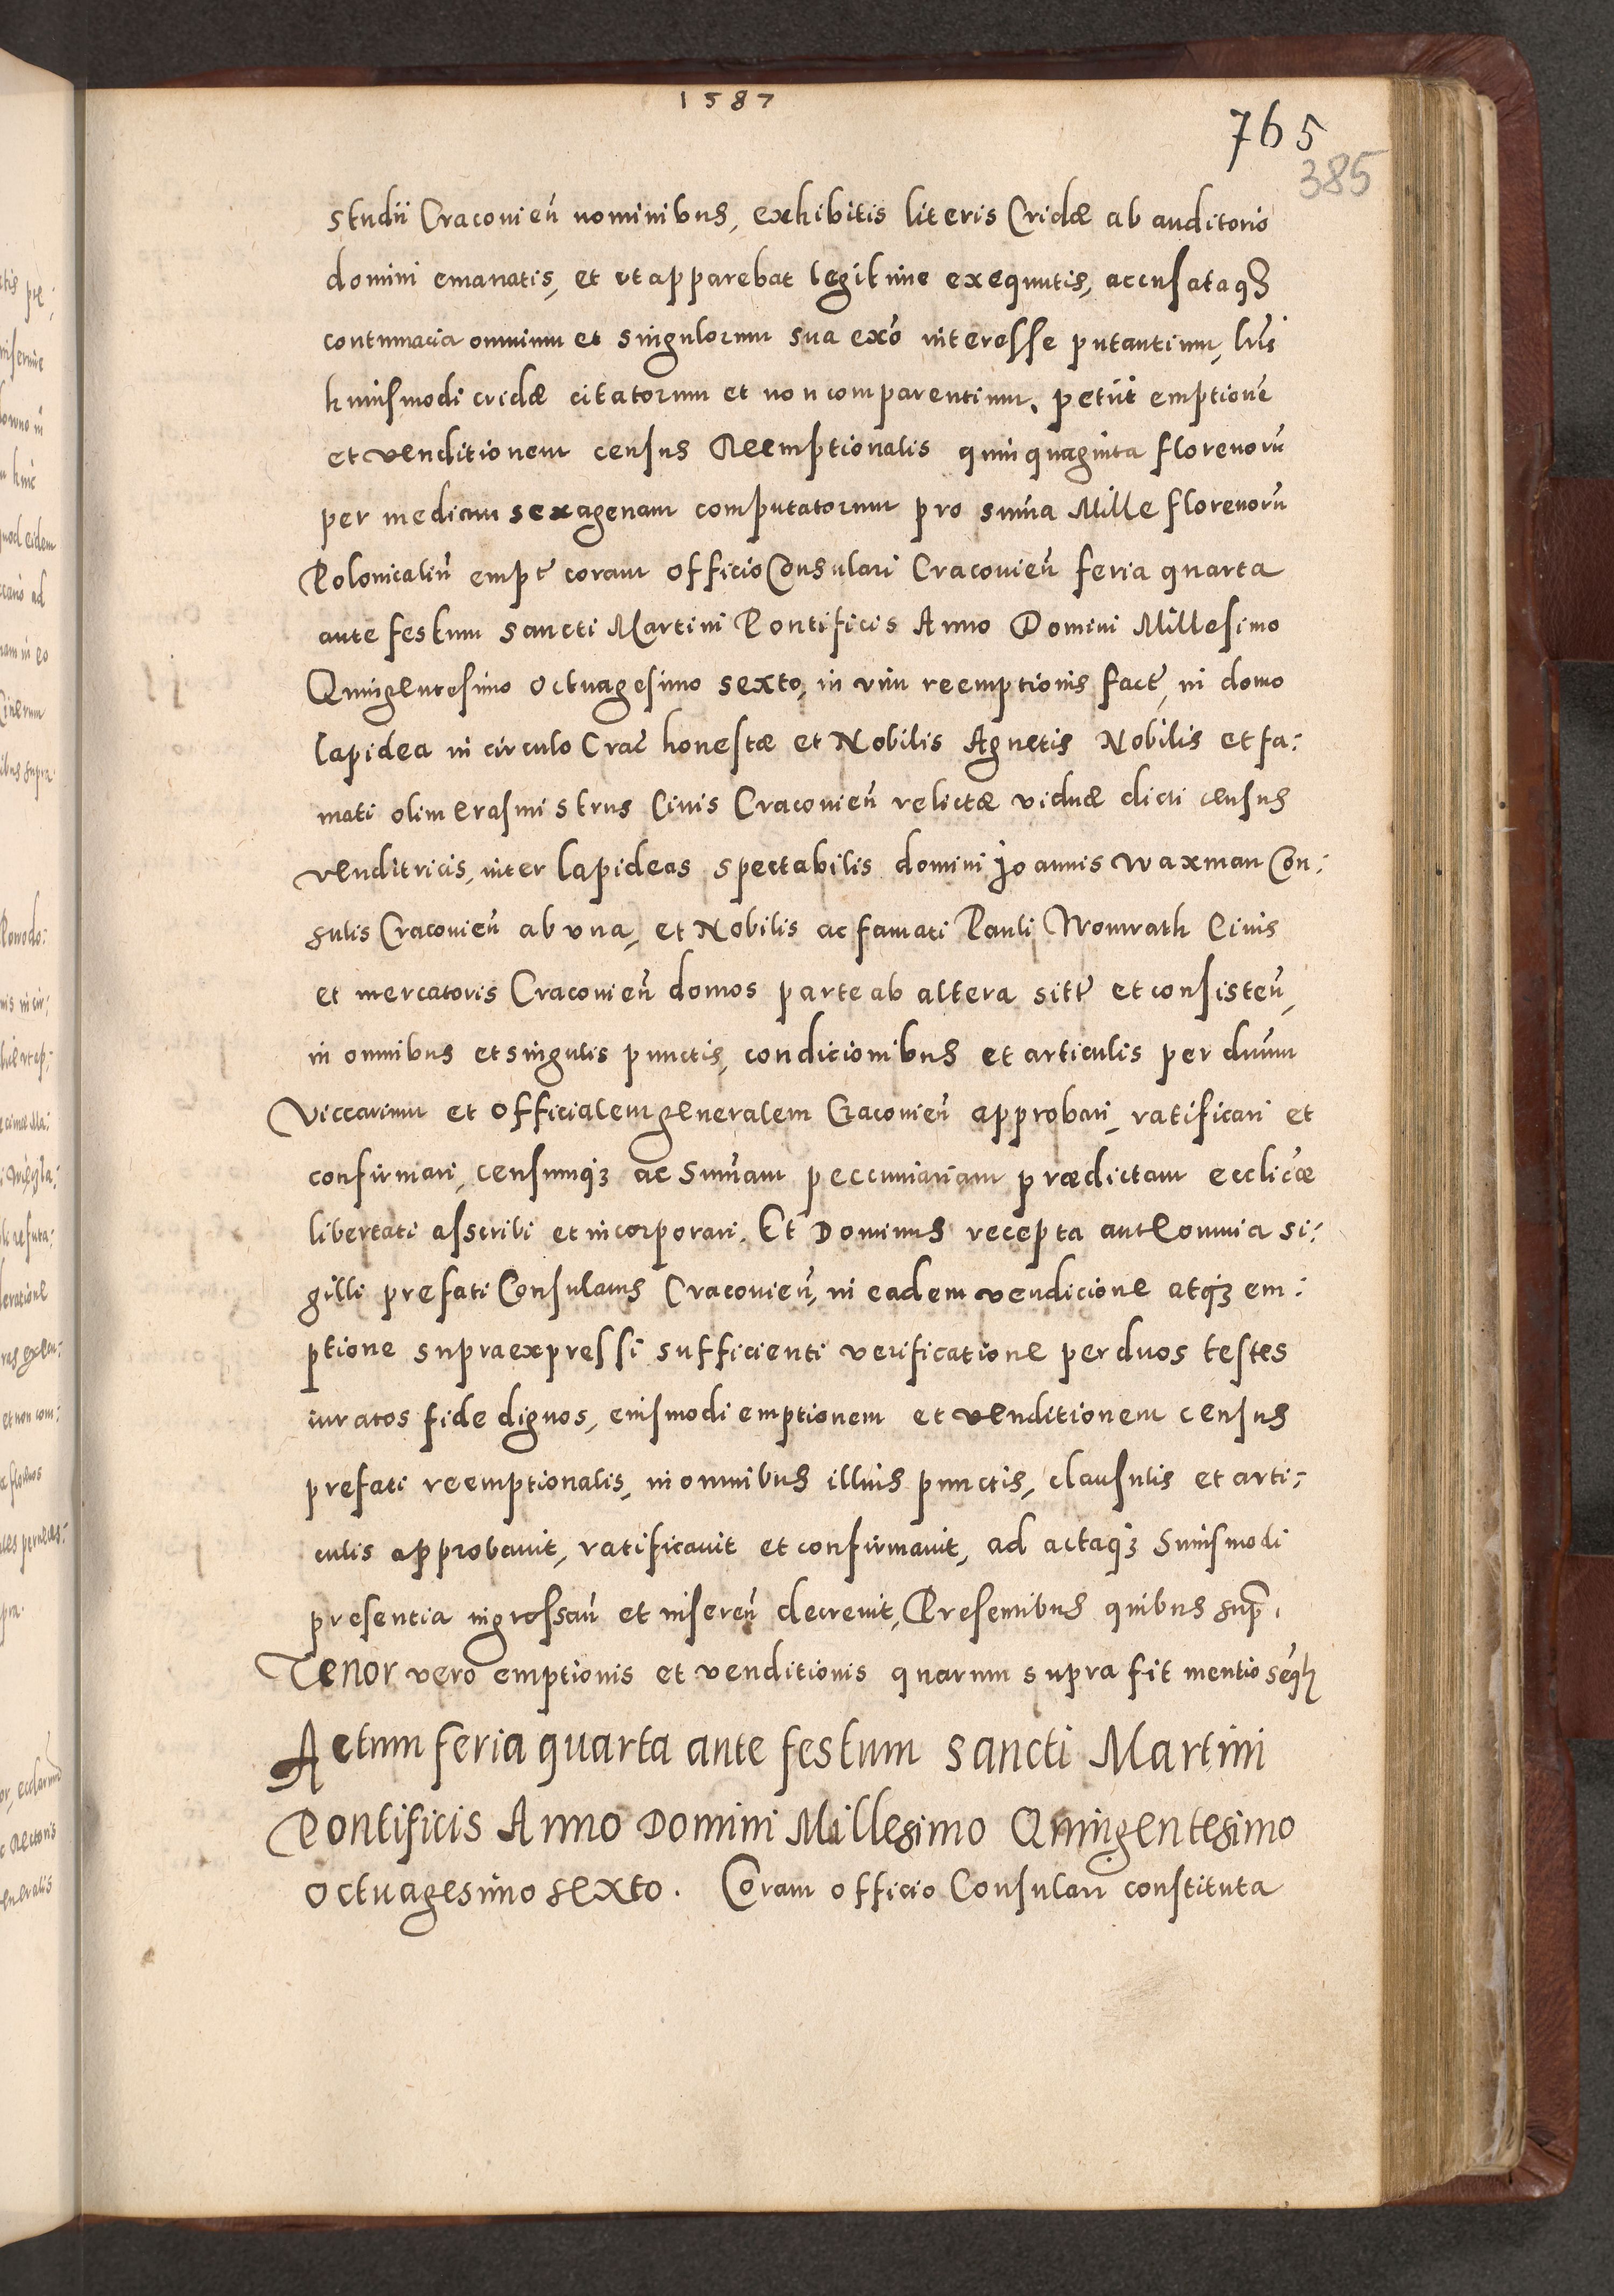 1587
765
385
studii Cracovieñ nominibus, exhibitis literis Cridæ ab auditorio
domini emanatis, et ut apparebat legitime exequutis, accusataqȝ
contumacia omnium et singulorum sua exõ interesse putantium, lris
huiusmodi cridæ citatorum et non comparentium, petiit emptionẽ
et venditionem census Reemptionalis quinquaginta florenorũ
per mediam sexagenam computatorum pro sum̃a Mille florenorũ
Polonicaliũ empt̃ coram officio Consulari Cracovieñ feria quarta
ante festum Sancti Martini Pontificis Anno Domini Millesimo
Quingentesimo Octuagesimo sexto, in vim reemptionis fact̃, in domo
lapidea in circulo Crac̃ honestæ et Nobilis Agnetis Nobilis et fa:
mati olim erasmi strus Civis Cracovieñ relictæ viduæ dicti census
venditricis, inter lapideas spectabilis domini Joannis Waxman Con:
sulis Cracovieñ ab una, et Nobilis ac famati Pauli Wonwrath Civis
et mercatoris Cracovieñ domos parte ab altera sitt̃ et consisteñ,
in omnibus et singulis punctis, conditionibus et articulis per dnum
Viccarium et Officialem generalem Cracovieñ approbari, ratificari et
confirmari, censumqȝ ac Sum̃am peccuniariam prædictam ecclicæ
libertati asscribi et incorporari. Et Dominus recepta ante omnia si:
gilli prefati Consularis Cracovieñ, in eadem vendicione atqȝ em:
ptione supraexpressi sufficienti verificatione per duos testes
iuratos fide dignos, eiusmodi emptionem et venditionem census
prefati reemptionalis, in omnibus illius punctis, clausulis et arti:
culis approbavit, ratificavit et confirmavit, ad actaqȝ Suiusmodi
presentia ingrossañ et insereñ decrevit, Presentibus quibus sup̃.
Tenor vero emptionis et venditionis quarum supra fit mentio seq̃
Actum feria quarta ante festum Sancti Martini
Pontificis Anno Domini Millesimo Quingentesimo
Octuagesimo sexto. Coram officio Consulari constituta